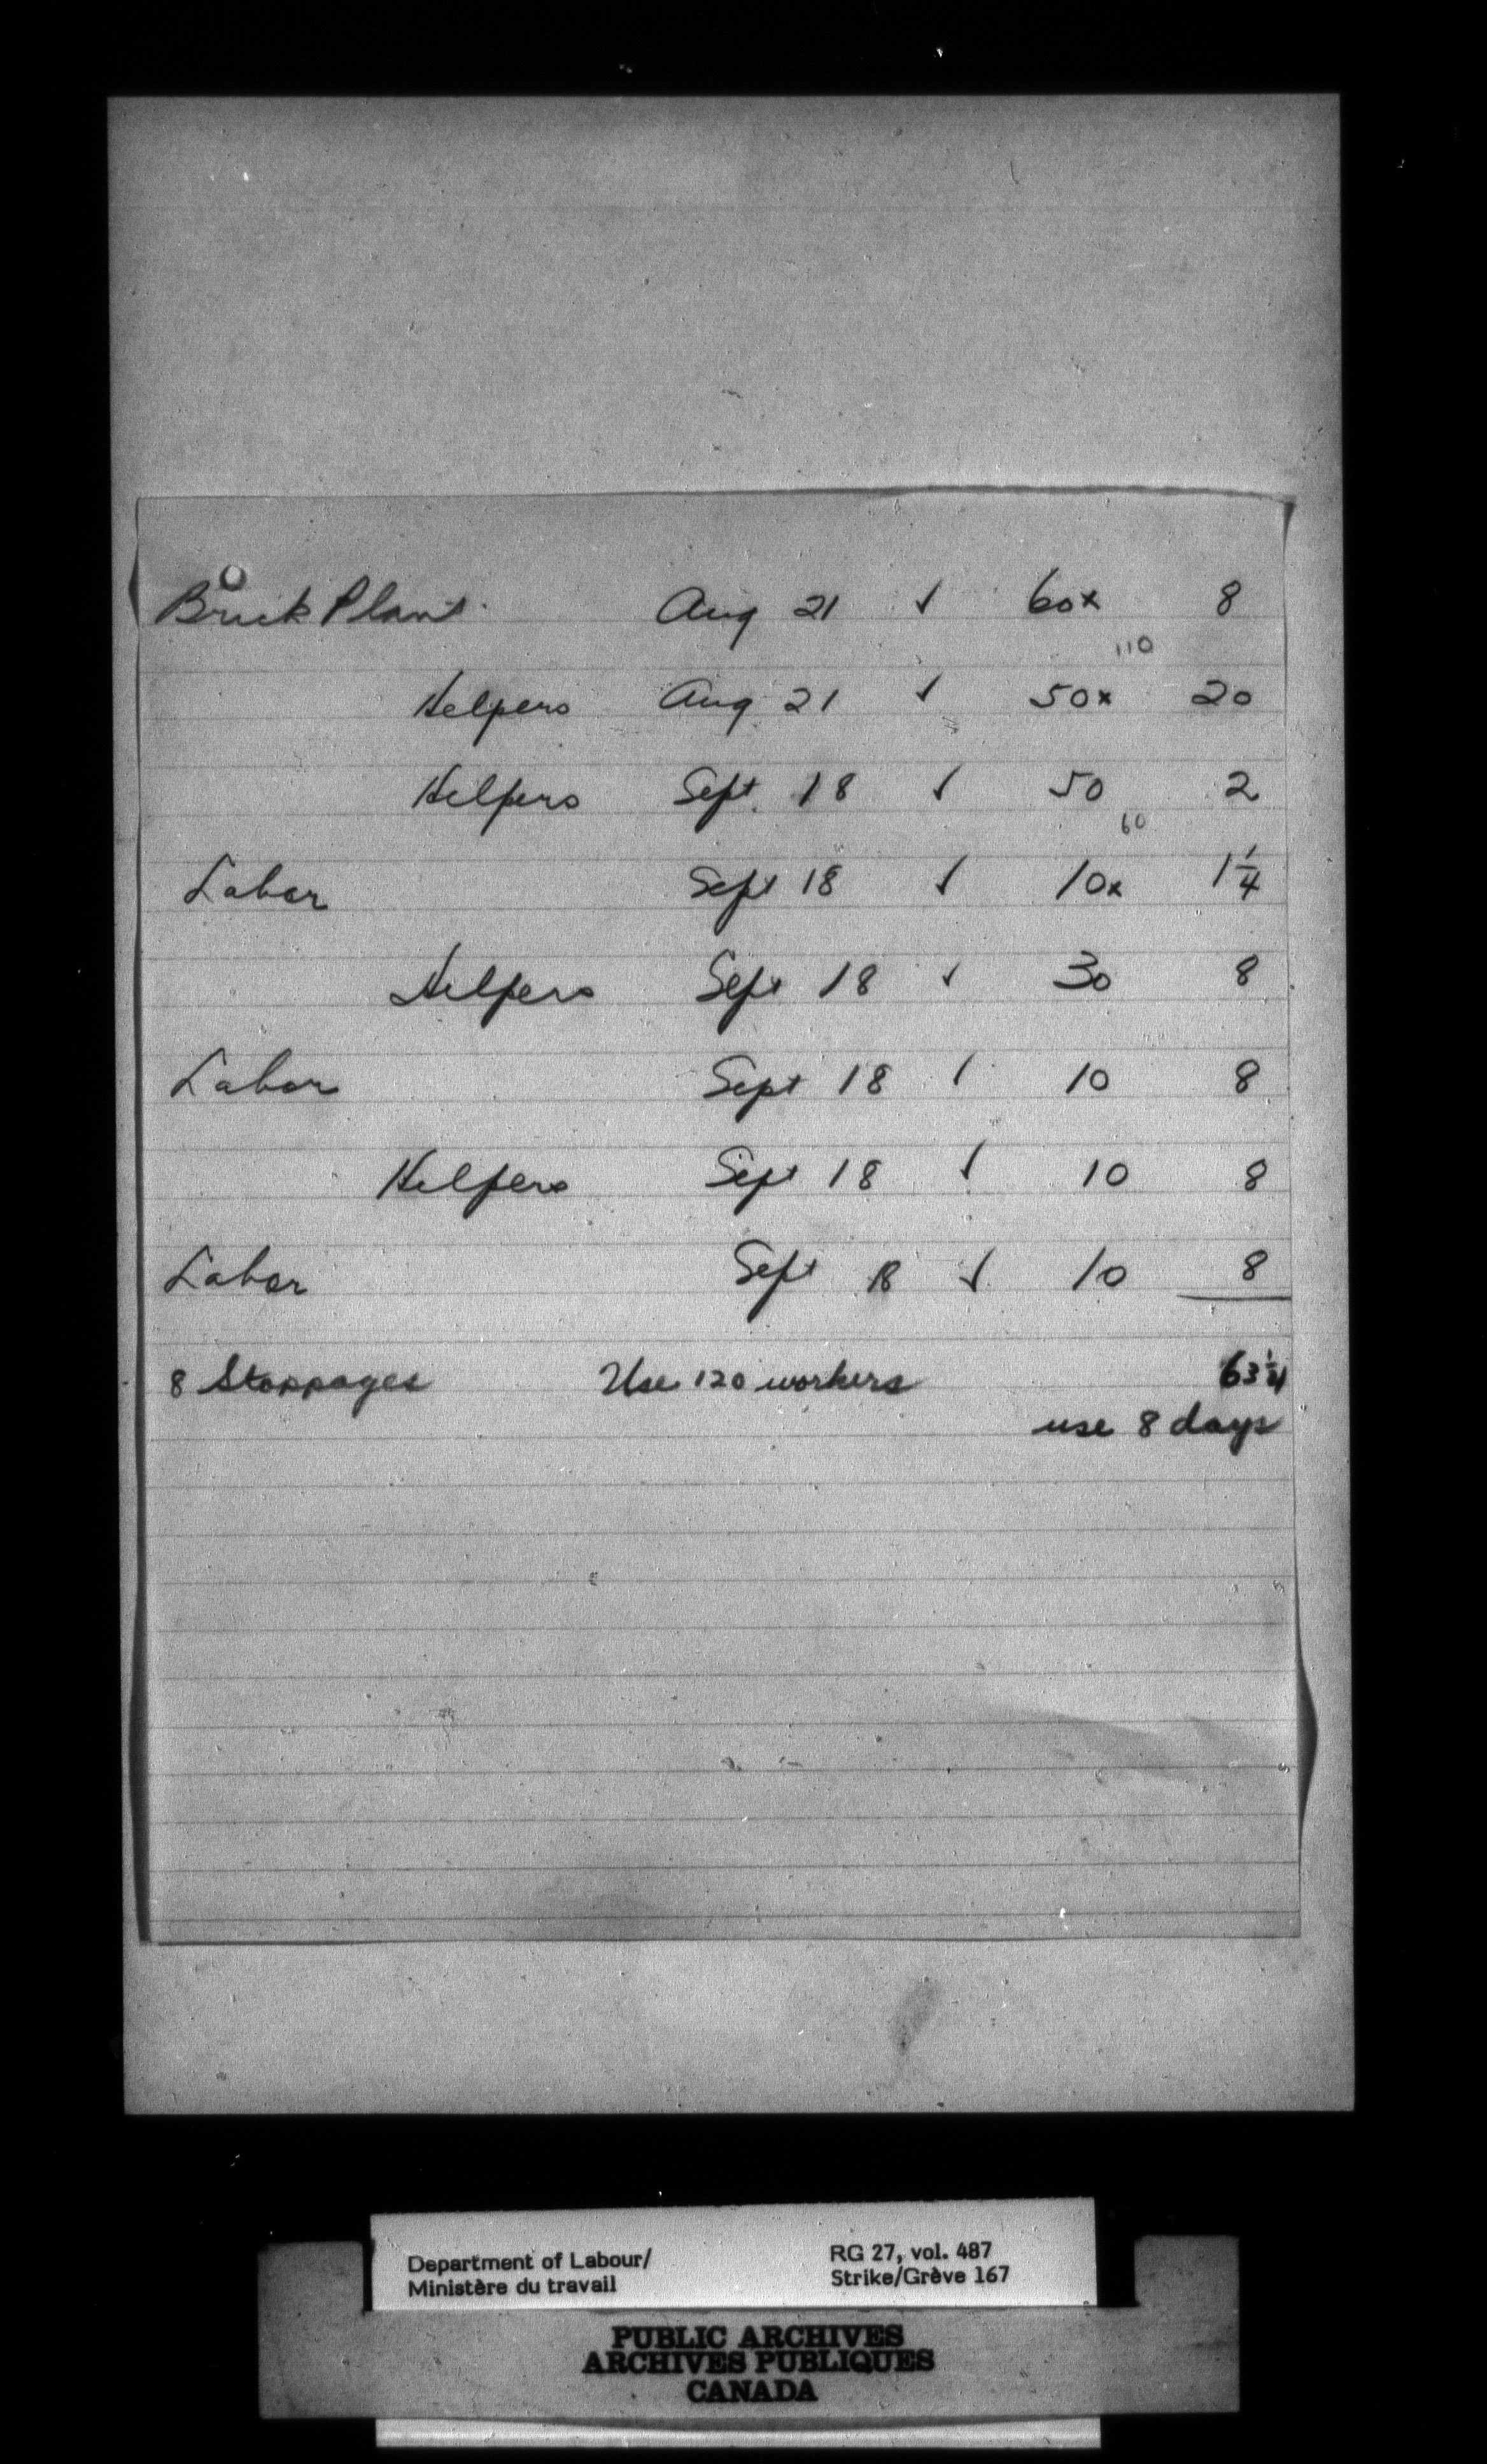 Brick Plant Aug 21 ✓ 60x 8
110
Helpers Aug 21 ✓ 50x 20
Helpers Sept. 18 ✓ 50 2
60
Labor Sept 18 ✓ 10x 1 1/4
Helpers Sept 18 ✓ 30 8
Labor Sept 18 ✓ 10 8
Helpers Sept 18 ✓ 10 8
Labor Sept 18 ✓ 10 8
8 Stoppages Use 120 workers 63 1/4
use 8 days
Department of Labour/ RG 27, vol. 487
Ministère du travail Strike/Grève 167
PUBLIC ARCHIVES
ARCHIVES PUBLIQUES
CANADA